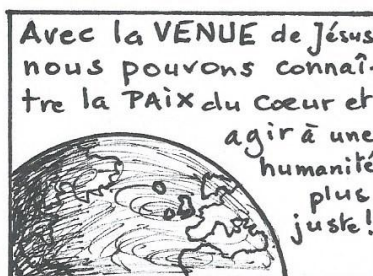 Avec la VENUE de Jésus
nous pouvons connaî-
tre la PAiX du cœur et
agir à une
humanité
plus
juste!